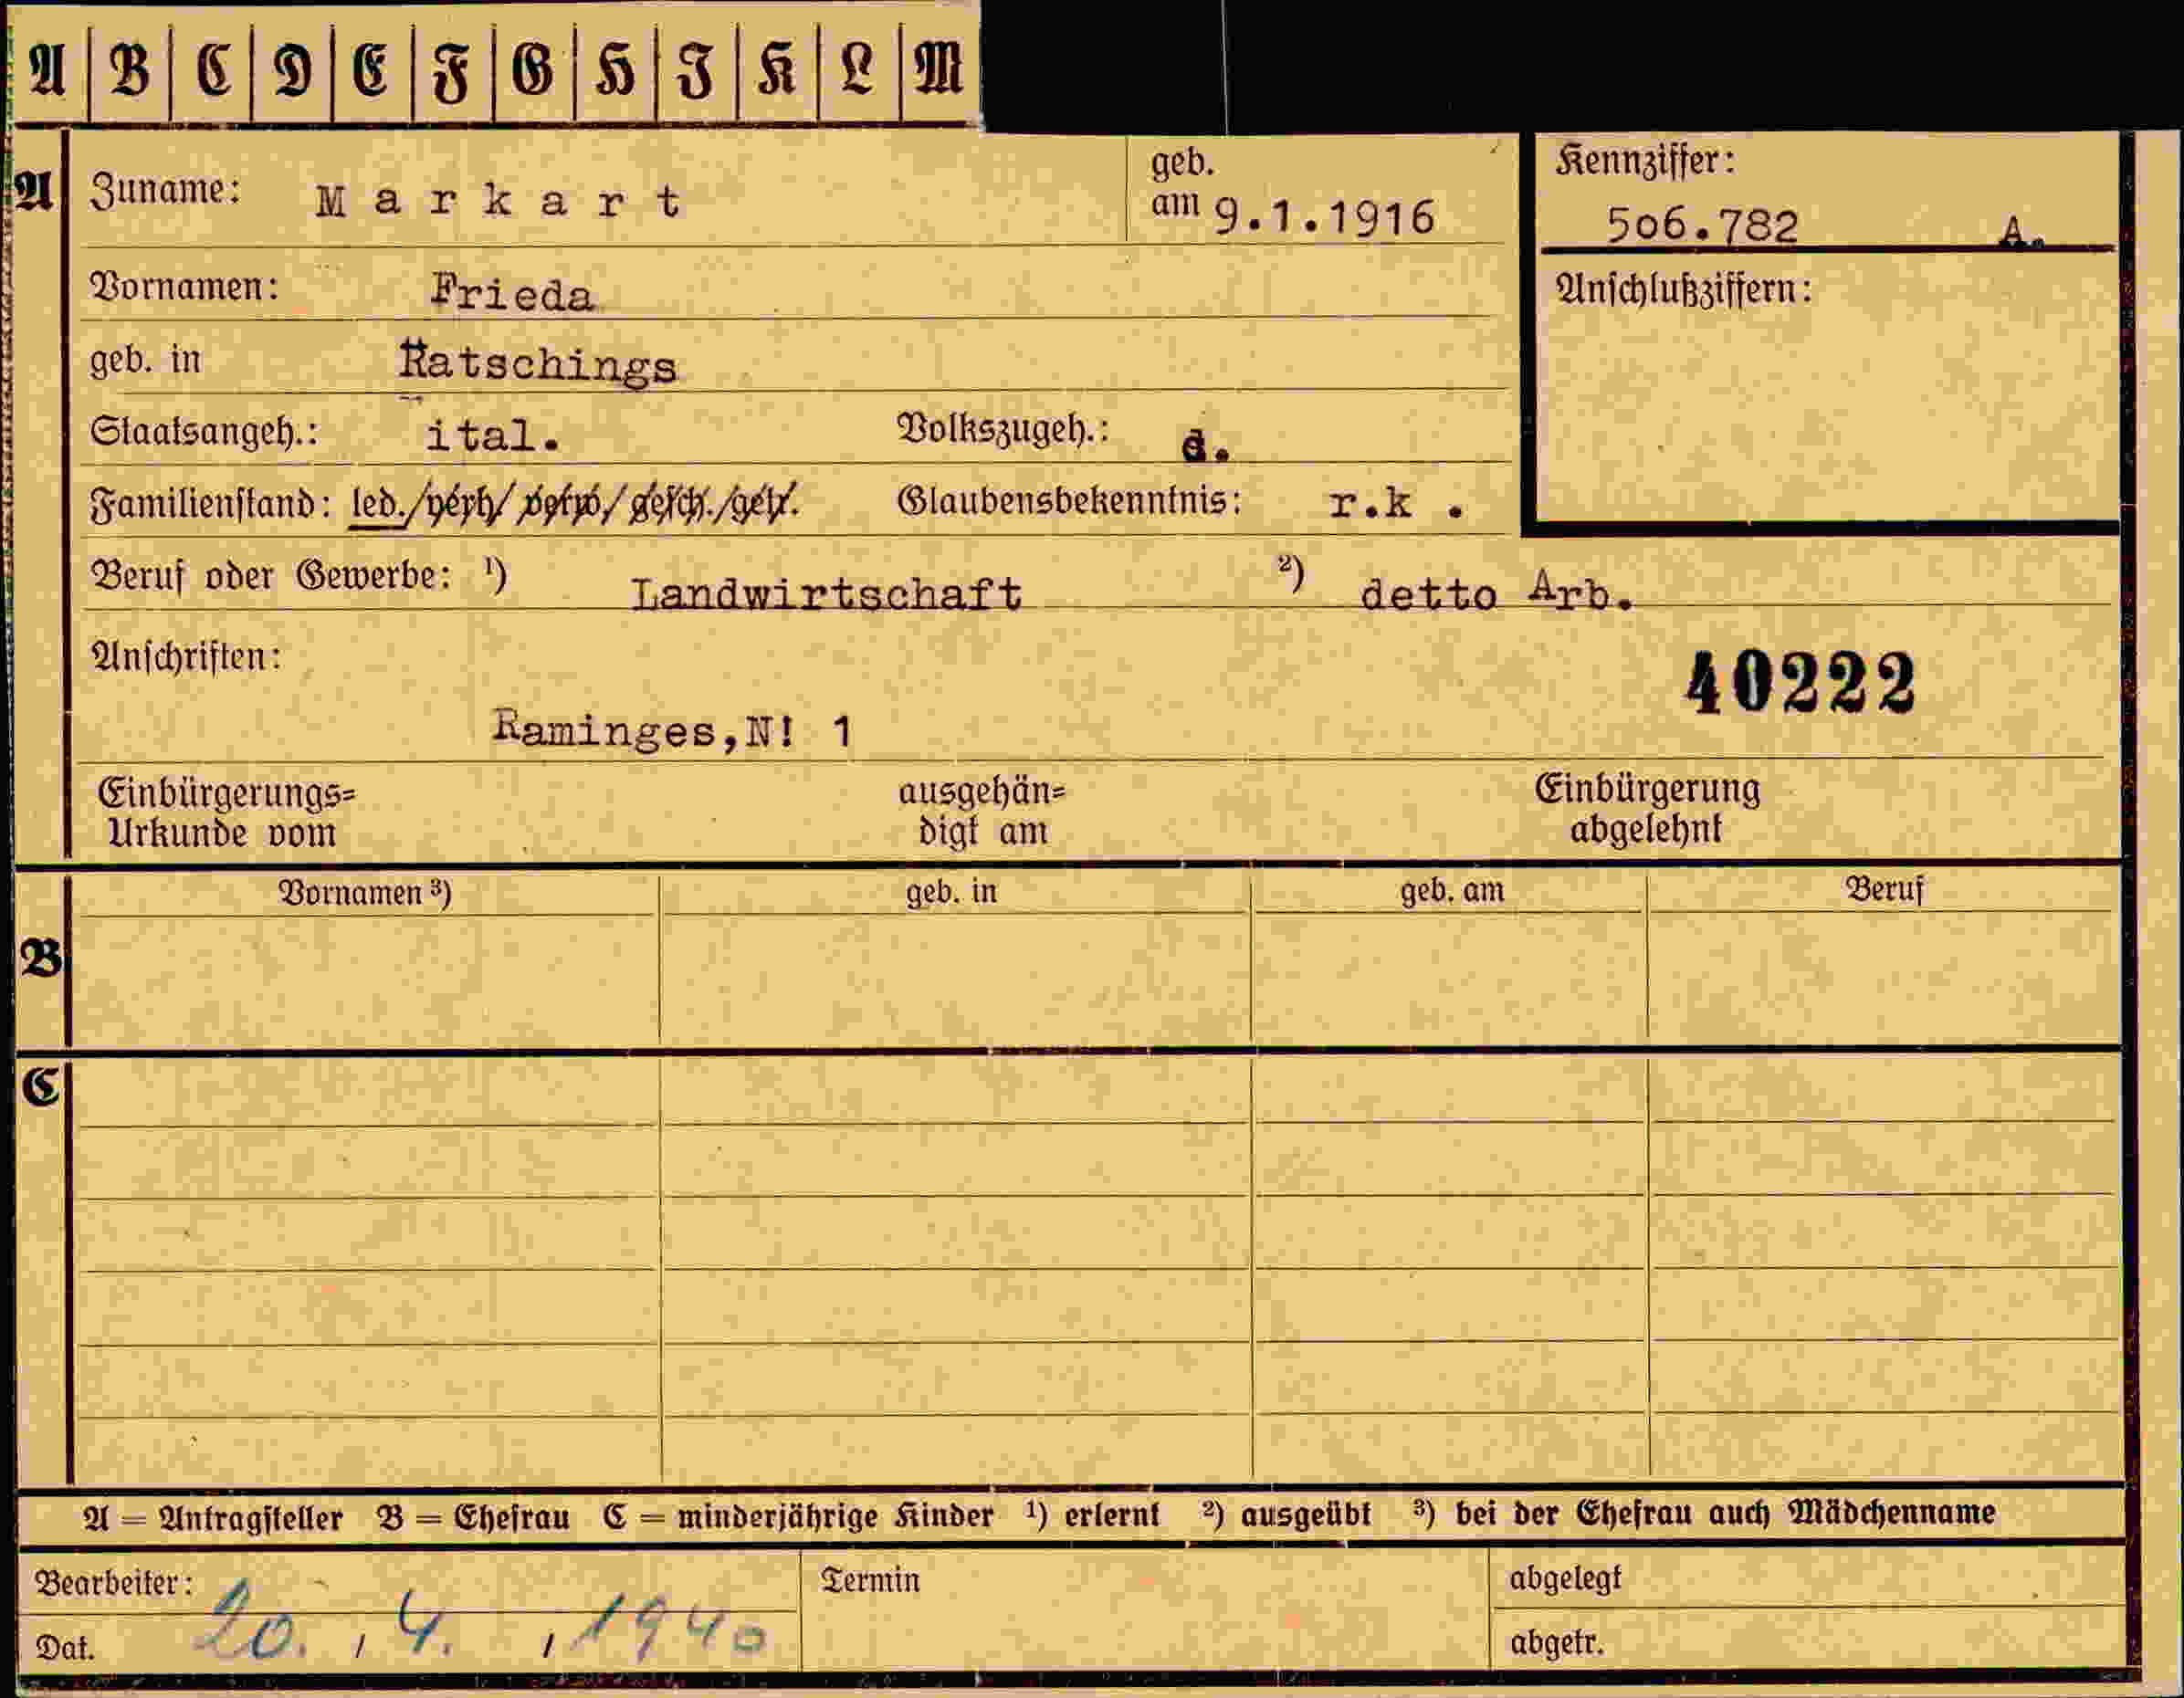 A B C D E F G H I K L M
A Zuname: Markart geb. am 9.1.1916 Kennziffer: 506.782 A.
Vornamen: Frieda Anschlußziffern:
geb. in Ratschings
Staatsangeh.: ital. Volkszugeh.: d.
Familienstand: led./verh/verw/gesch./getr. Glaubensbekenntnis: r.k .
Beruf oder Gewerbe: ¹) Landwirtschaft ²) detto Arb.
Anschriften: 40222
Raminges,N! 1
Einbürgerungs= ausgehän= Einbürgerung
Urkunde vom digt am abgelehnt
Vornamen ³) geb. in geb. am Beruf
B
C
A = Antragsteller B = Ehefrau C = minderjährige Kinder ¹) erlernt ²) ausgeübt ³) bei der Ehefrau auch Mädchenname
Bearbeiter: Termin abgelegt
Dat. 20. , 4. , 1940 abgetr.